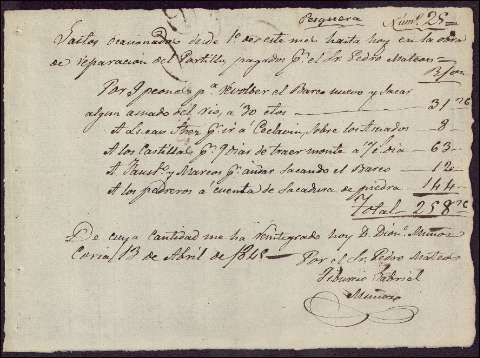 Pesquera
Num.º 25
Gastos ocasionados desde 1.º de este mes hasta hoy en la obra
de reparacion del Portillo, pagados p.r el Sr. Pedro Mateos
R.s von
Por 9 peones p.a rebolber el Barco nuevo y sacar
algun amado del rio, a 30 ctos 31 26
A Lucas p.r ir a Ceclavin, sobre los Amados 8
A los Castillos p.r 9 dias de traer monte a 7 r.s dia 63
A Faust.º y Marcos p.r aiudar sacando el Barco 12
A los pedreros a cuenta de sacadura de piedra 144
Total 258 26
De cuya cantidad me ha reintegrado hoy D. Dion.º Muñoz
Coria, 13 de Abril de 1845
Por el Sr. Pedro Mateos
Tiburcio Gabriel
Muñoz